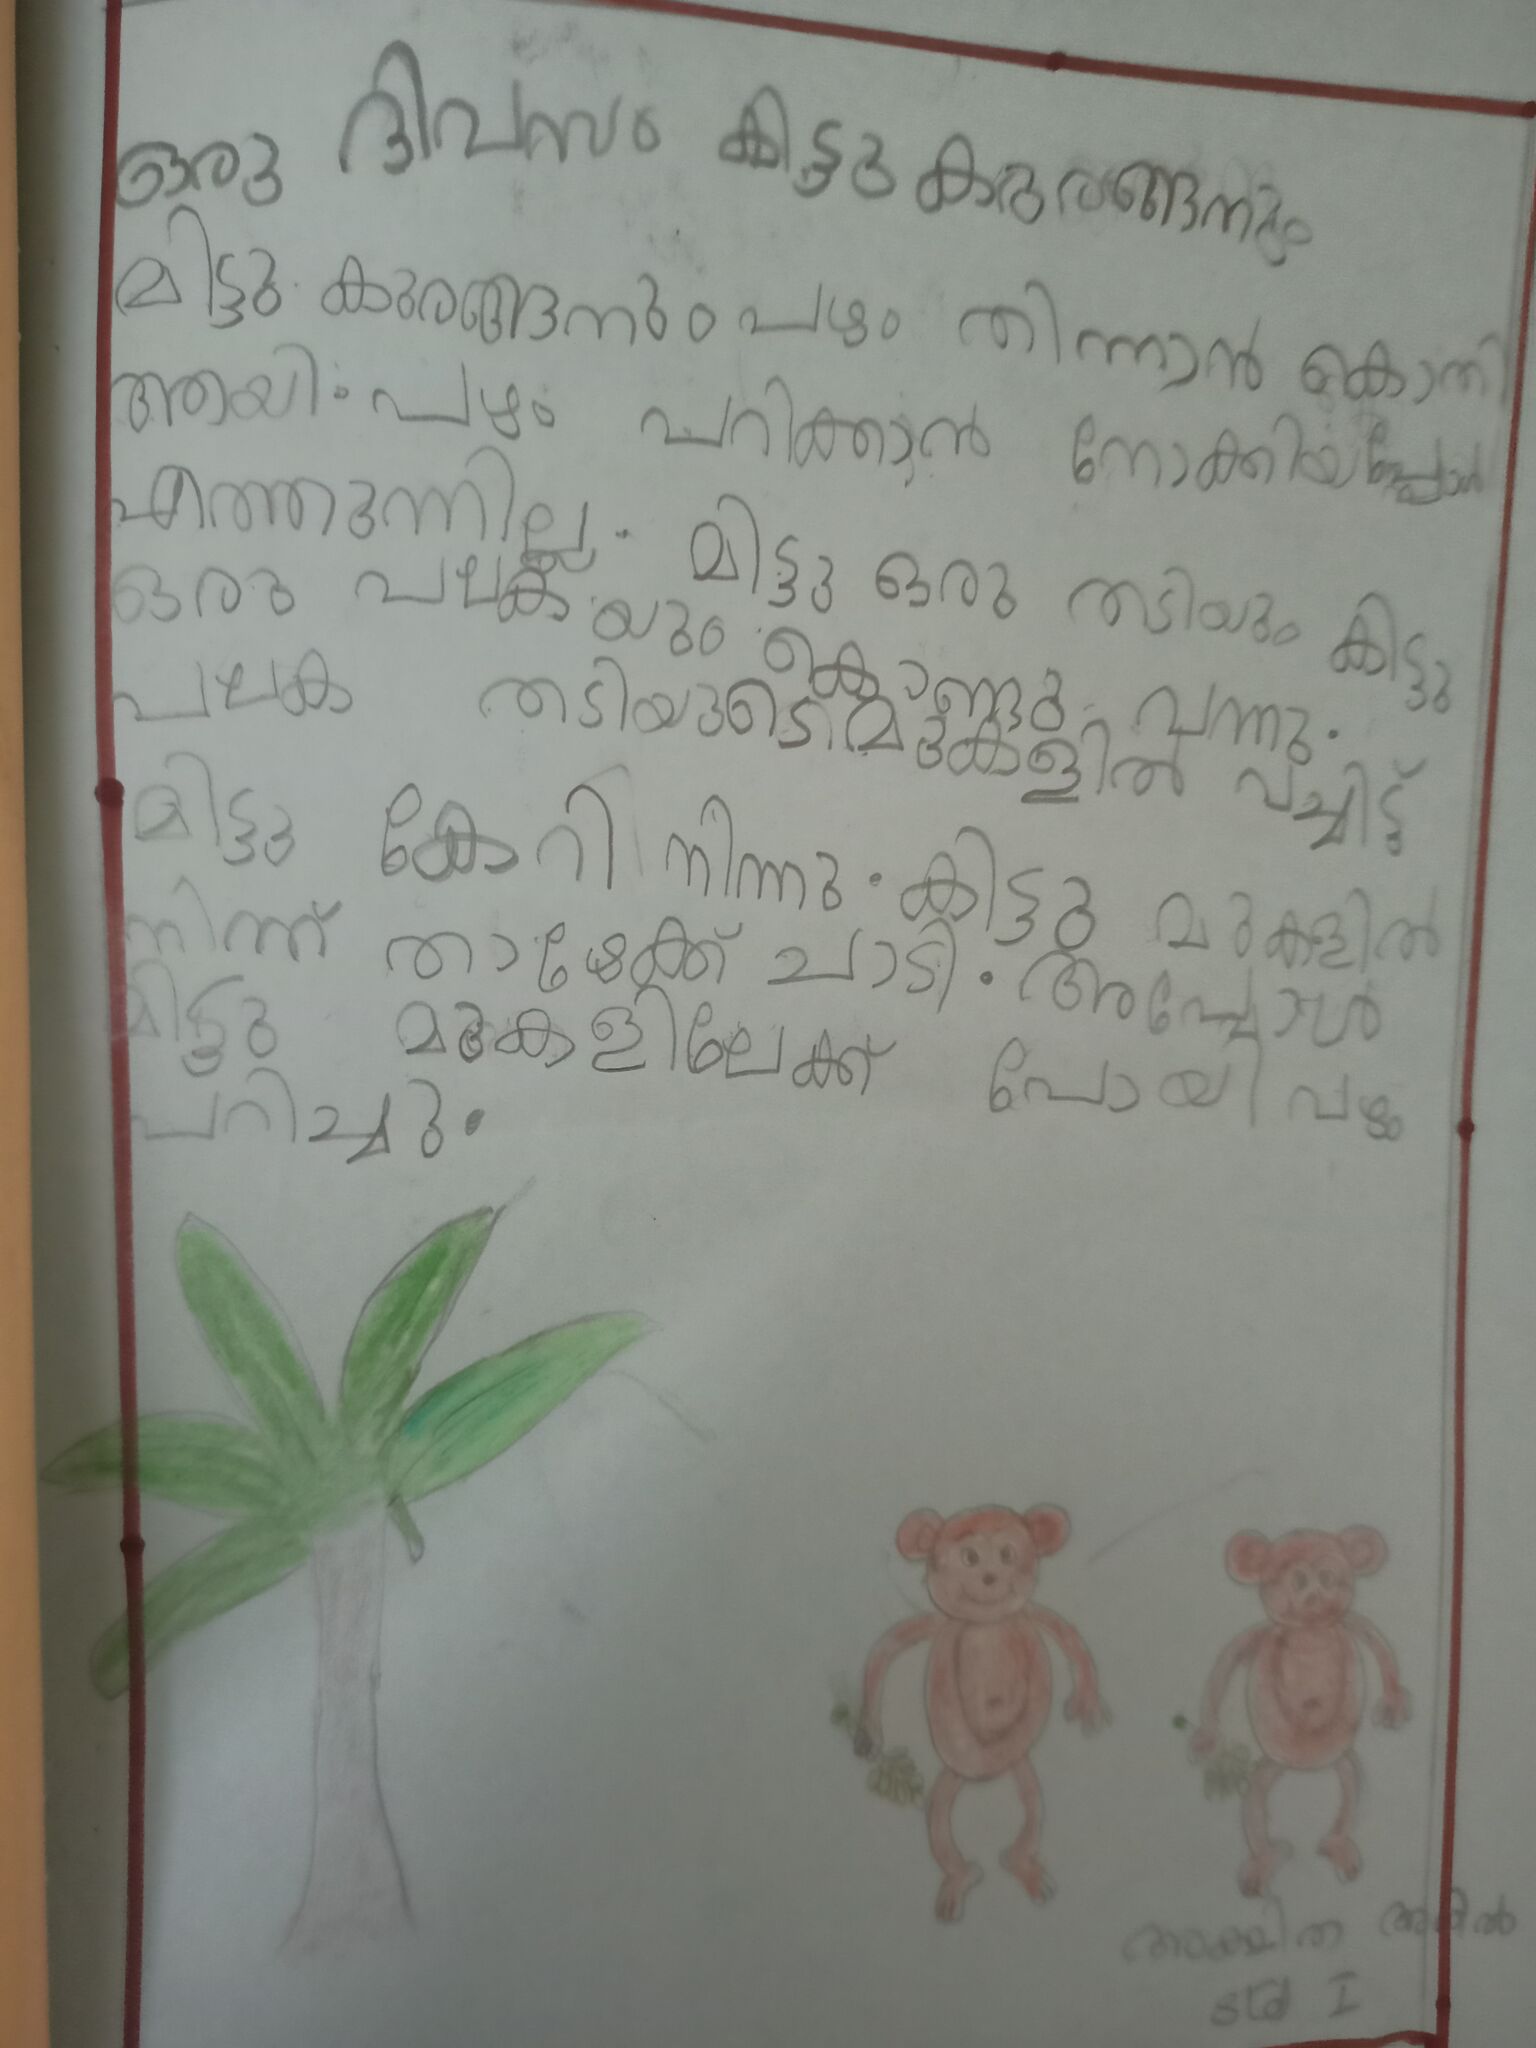 ഒരു ദിവസം കിട്ടു കുരങ്ങനും
മിട്ടു കുരങ്ങനും പഴം തിന്നാൻ കൊതി
ആയി. പഴം പറിക്കാൻ നോക്കിയപ്പോൾ
എത്തുന്നില്ല. മിട്ടു ഒരു തടിയും കിട്ടു
ഒരു പലകയും കൊണ്ടു വന്നു.
പലക തടിയുടെ മുകളിൽ വച്ചിട്ട്
മിട്ടു കേറി നിന്നു. കിട്ടു മുകളിൽ
നിന്ന് താഴേക്ക് ചാടി. അപ്പോൾ
മിട്ടു മുകളിലേക്ക് പോയി പഴം
പറിച്ചു.
std I